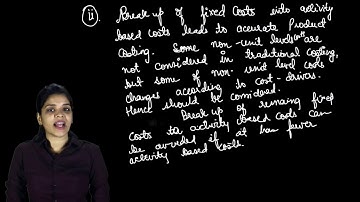 (ii). Break up of fixed costs into activity
based costs leads to accurate product
costing. Some non-unit level costs are
not considered in traditional costing,
but some of non-unit level costs
changes according to cost-drivers.
Hence should be considered.
Break up of remaing fixed
costs to activity based costs can
be avoided if it has fewer
activity based costs.